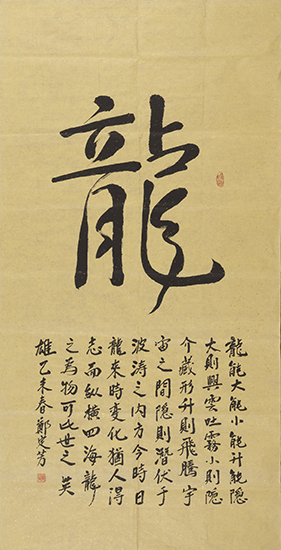 龍
龍能大能小能升能隱
大則興雲吐霧小則隱
介藏形升則飛騰宇
宙之間隱則潛伏于
波涛之内方今時日
龍来時变化猶人得
志而纵横四海龍
之為物可比世之英
雄乙未春鄭定芳